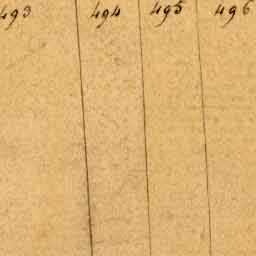 493 494 495 496